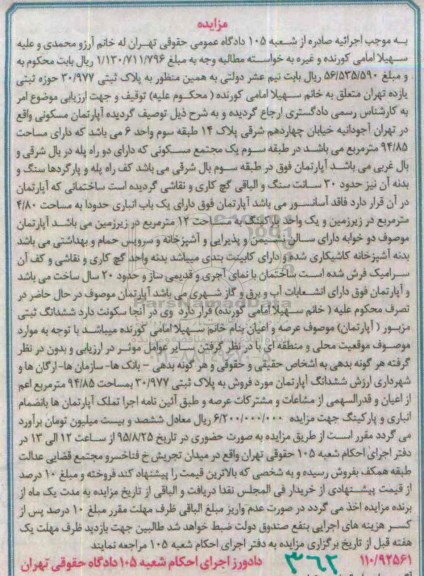 مزایده
به موجب اجرائیه صادره از شعبه ۱۰۵ دادگاه عمومی حقوقی تهران له خانم آرزو محمدی و علیه
سهیلا امامی کورنده و غیره به خواسته مطالبه وجه به مبلغ ۱/۱۳۰/۷۱۱/۷۹۶ ریال بابت محکوم به
و مبلغ ۵۶/۵۳۵/۵۹۰ ریال بابت نیم عشر دولتی به همین منظور به پلاک ثبتی ۳۰/۹۷۷ حوزه ثبتی
یازده تهران متعلق به خانم سهیلا امامی کورنده ( محکوم علیه) توقیف و جهت ارزیابی موضوع امر
به کارشناس رسمی دادگستری ارجاع گردیده و به شرح ذیل توصیف گردیده آپارتمان مسکونی واقع
در تهران آجودانیه خیابان چهاردهم شرقی پلاک ۱۴ طبقه سوم واحد ۶ می باشد که دارای مساحت
۹۴/۸۵ مترمربع می باشد در طبقه سوم یک مجتمع مسکونی که دارای دو راه پله در بال شرقی و
بال غربی می باشد آپارتمان فوق در طبقه سوم بال شرقی می باشد کف راه پله و پارگردها سنگ و
بدنه آن نیز حدود ۳۰ سانت سنگ و الباقی گچ کاری و نقاشی گردیده است ساختمانی که آپارتمان
در آن قرار دارد فاقد آسانسور می باشد آپارتمان فوق دارای یک باب انباری حدودا به مساحت ۴/۸۰
مترمربع در زیرزمین و یک واحد پارکینگ به مساحت ۱۲ مترمربع در زیرزمین می باشد آپارتمان
موصوف دو خوابه دارای سالن نشیمن و پذیرایی و آشپزخانه و سرویس حمام و بهداشتی می باشد
بدنه آشپزخانه کاشیکاری شده و دارای کابینت بندی میباشد بدنه واحد گچ کاری و نقاشی و کف آن
سرامیک فرش شده است ساختمان با نمای آجری و قدیمی ساز و حدود ۲۰ سال ساخت می باشد
و آپارتمان فوق دارای انشعابات آب و برق و گاز شهری می باشد آپارتمان موصوف در حال حاضر در
تصرف محکوم علیه ( خانم سهیلا امامی کورنده) قرار دارد وی در آنجا سکونت دارد ششدانگ ثبتی
مزبور ( آپارتمان) موصوف عرصه و اعیان بنام خانم سهیلا امامی کورنده میباشد با توجه به موارد
موصوف موقعیت محلی و منطقه ای با در نظر گرفتن سایر عوامل موثر در ارزیابی و بدون در نظر
گرفته هر گونه بدهی به اشخاص حقیقی و حقوقی و هر گونه بدهی – بانک ها- سازمان ها-ارگان ها و
شهرداری ارزش ششدانگ آپارتمان مورد فروش به پلاک ثبتی ۳۰/۹۷۷ بمساحت ۹۴/۸۵ مترمربع اعم
از اعیان و قدرالسهمی از مشاعات و مشترکات عرصه و طبق آئین نامه اجرا تملک آپارتمان ها بانضمام
انباری و پارکینگ جهت مزایده ۶/۲۰۰/۰۰۰/۰۰۰ ریال معادل ششصد و بیست میلیون تومان برآورد
می گردد مقرر است از طریق مزایده به صورت حضوری در تاریخ ۹۵/۸/۲۵ از ساعت ۱۲ الی ۱۳ در
دفتر اجرای احکام شعبه ۱۰۵ حقوقی تهران واقع در میدان تجریش خ فناخسرو مجتمع قضایی عدالت
طبقه همکف بفروش رسیده و به شخصی که بالاترین قیمت را پیشنهاد کند فروخته و مبلغ ۱۰ درصد
از قیمت پیشنهادی از خریدار فی المجلس نقدا دریافت و الباقی از تاریخ مزایده به مدت یک ماه از
برنده مزایده اخذ می گردد در صورت عدم واریز مبلغ الباقی ظرف مهلت مقرر مبلغ ۱۰ درصد پس از
کسر هزینه های اجرایی بنفع صندوق دولت ضبط خواهد شد طالبین جهت بازدید ظرف مهلت یک
هفته قبل از تاریخ برگزاری مزایده به دفتر اجرای احکام شعبه ۱۰۵ مراجعه نمایند
۱۱۰/۹۲۵۶۱ ۳۶۲ دادورز اجرای احکام شعبه ۱۰۵ دادگاه حقوقی تهران